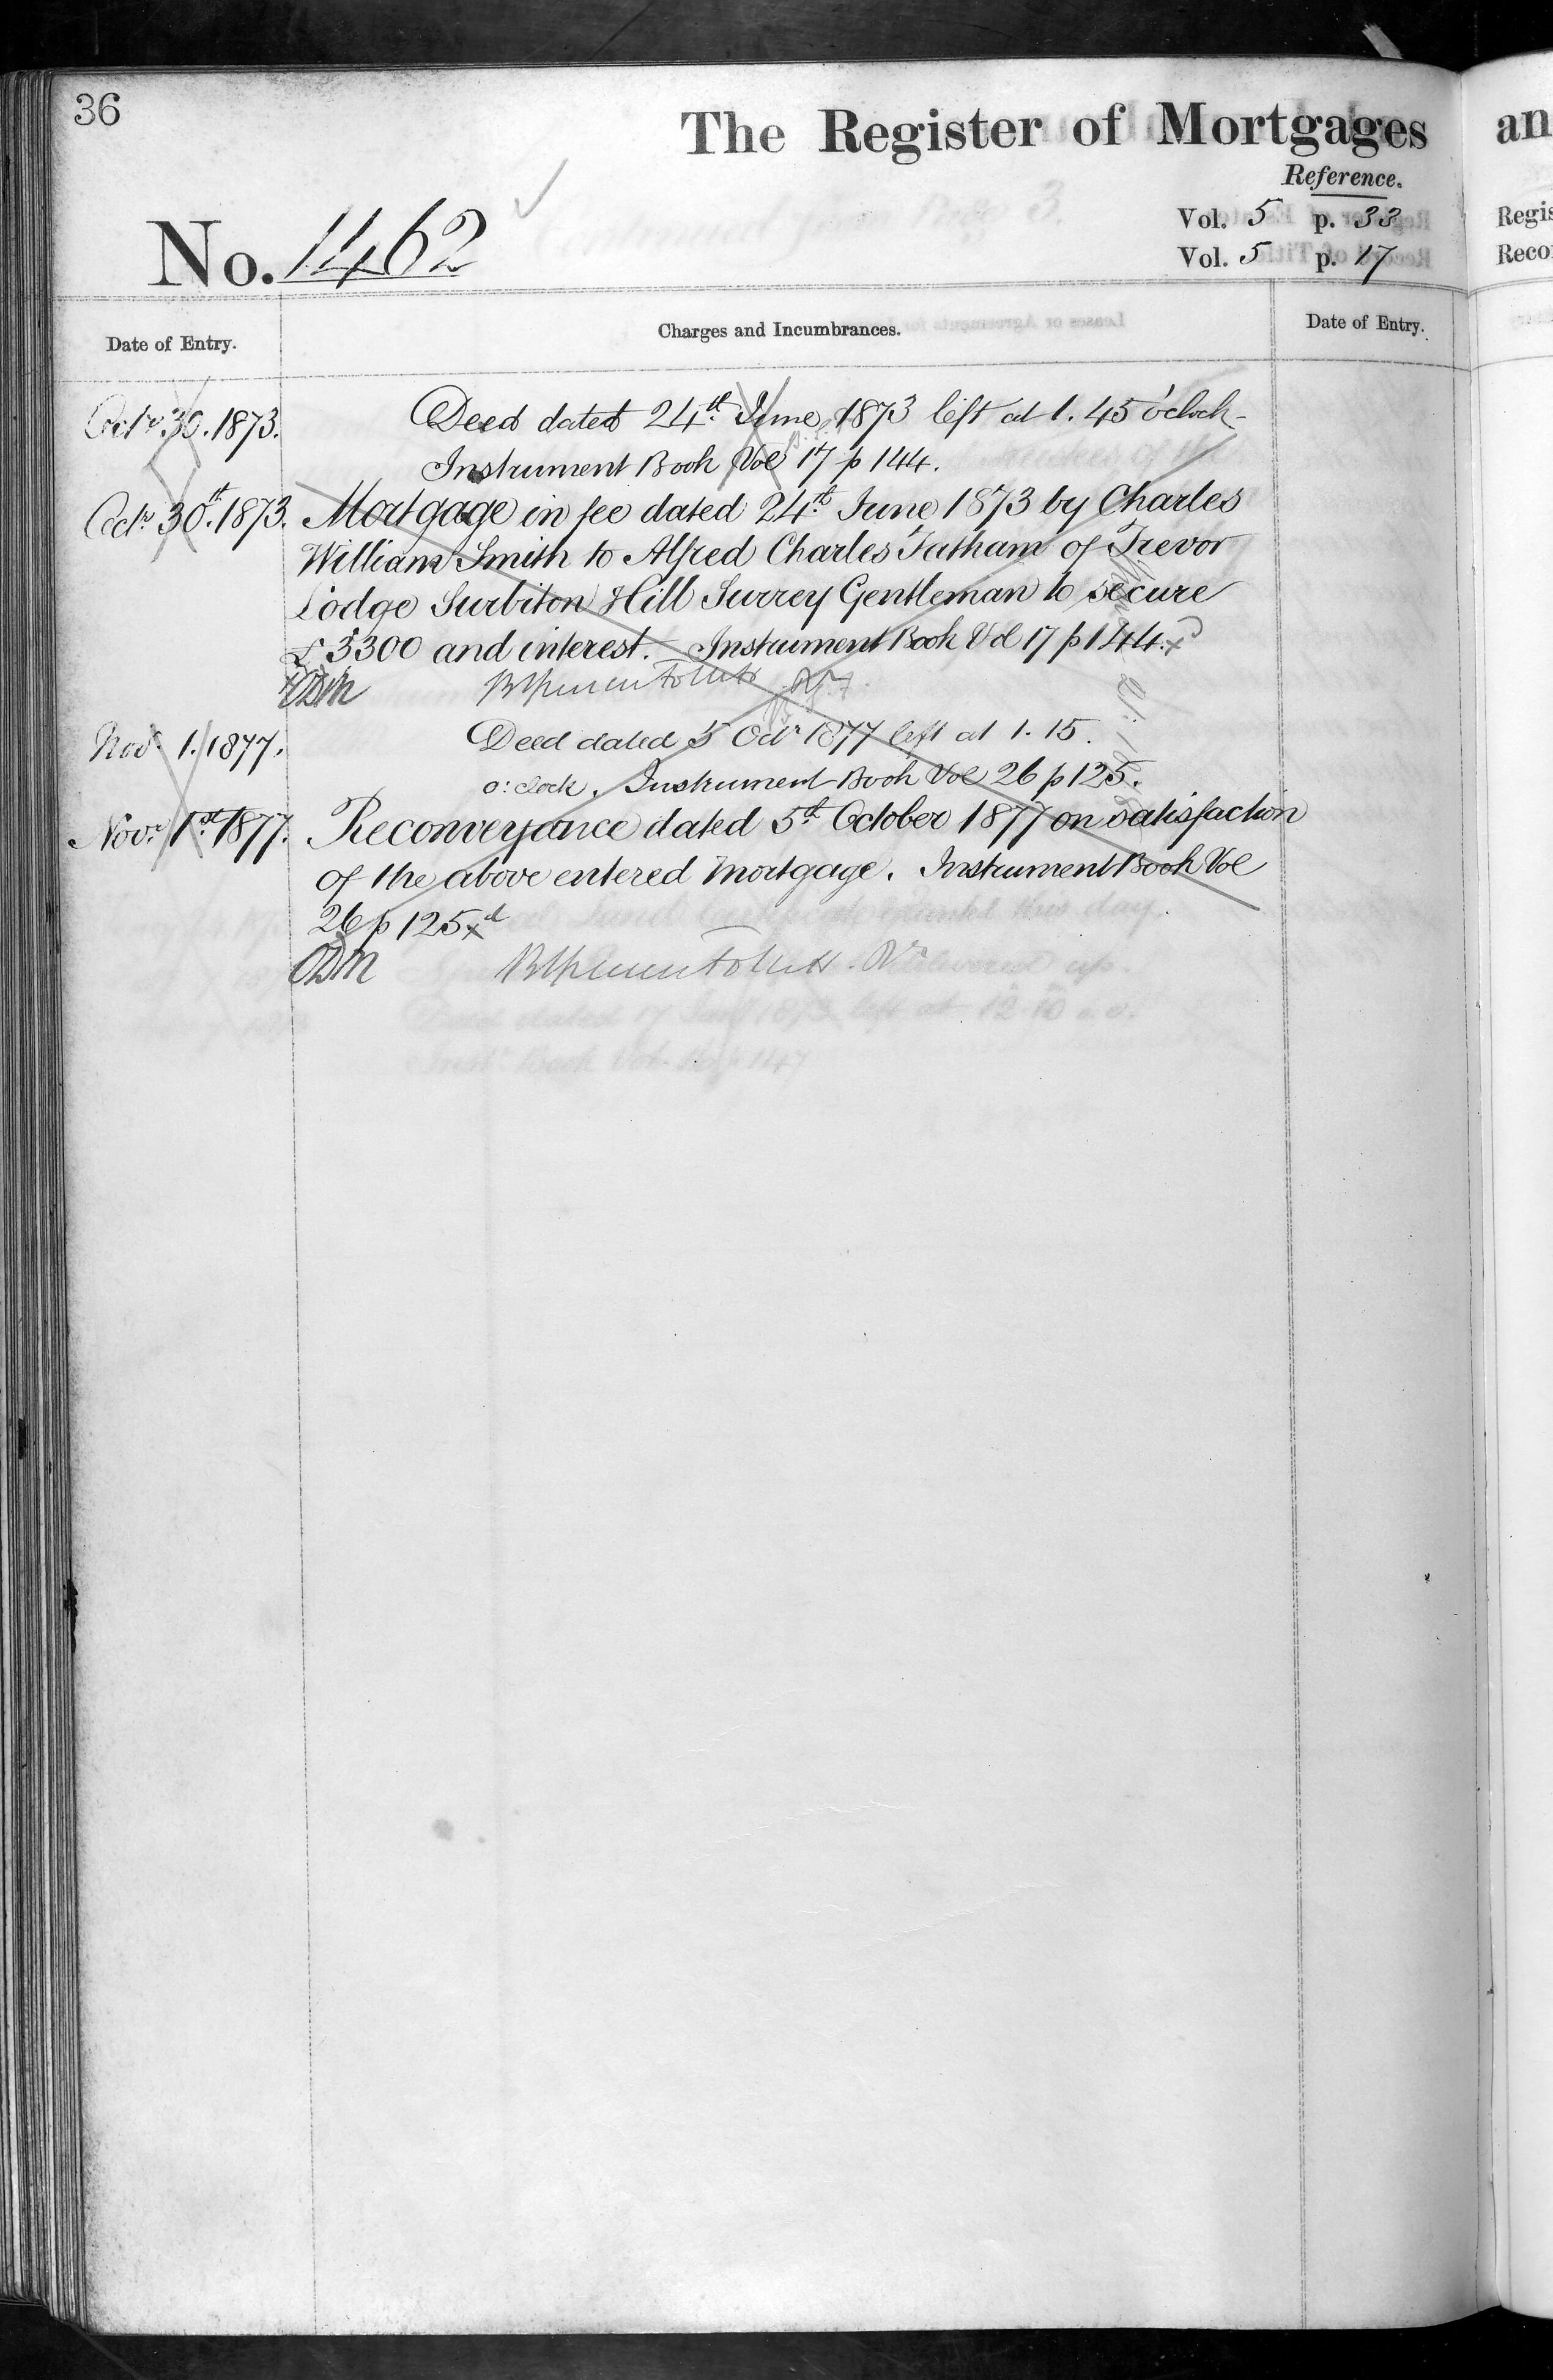 36
The Register of Mortgages
an
Reference.
No. 1462
Vol. 5 p. 33
Regis
Vol. 5 p. 17
Reco
Date of Entry.
Charges and Incumbrances.
Date of Entry.
Octr. 30. 1873.
Deed dated 24th June 1873 left at 1.45 o'clock
Instrument Book Vol 17 p 144.
Octr. 30th. 1873.
Mortgage in fee dated 24th June 1873 by Charles
William Smith to Alfred Charles Tatham of Trevor
Lodge Surbiton Hill Surrey Gentleman to secure
£3300 and interest. Instrument Book Vol 17 p 144.
Novr 1. 1877.
Deed dated 5 Octr 1877 left at 1.15.
o:clock. Instrument Book Vol 26 p 125.
Novr. 1st 1877.
Reconveyance dated 5th October 1877 on satisfaction
of the above entered Mortgage. Instrument Book Vol
26 p 125